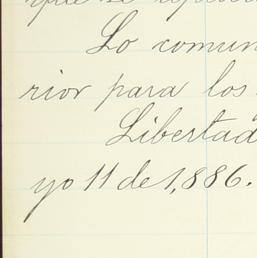 que se
Lo comun
rior para los
Libertad
yo 11 de 1,886.